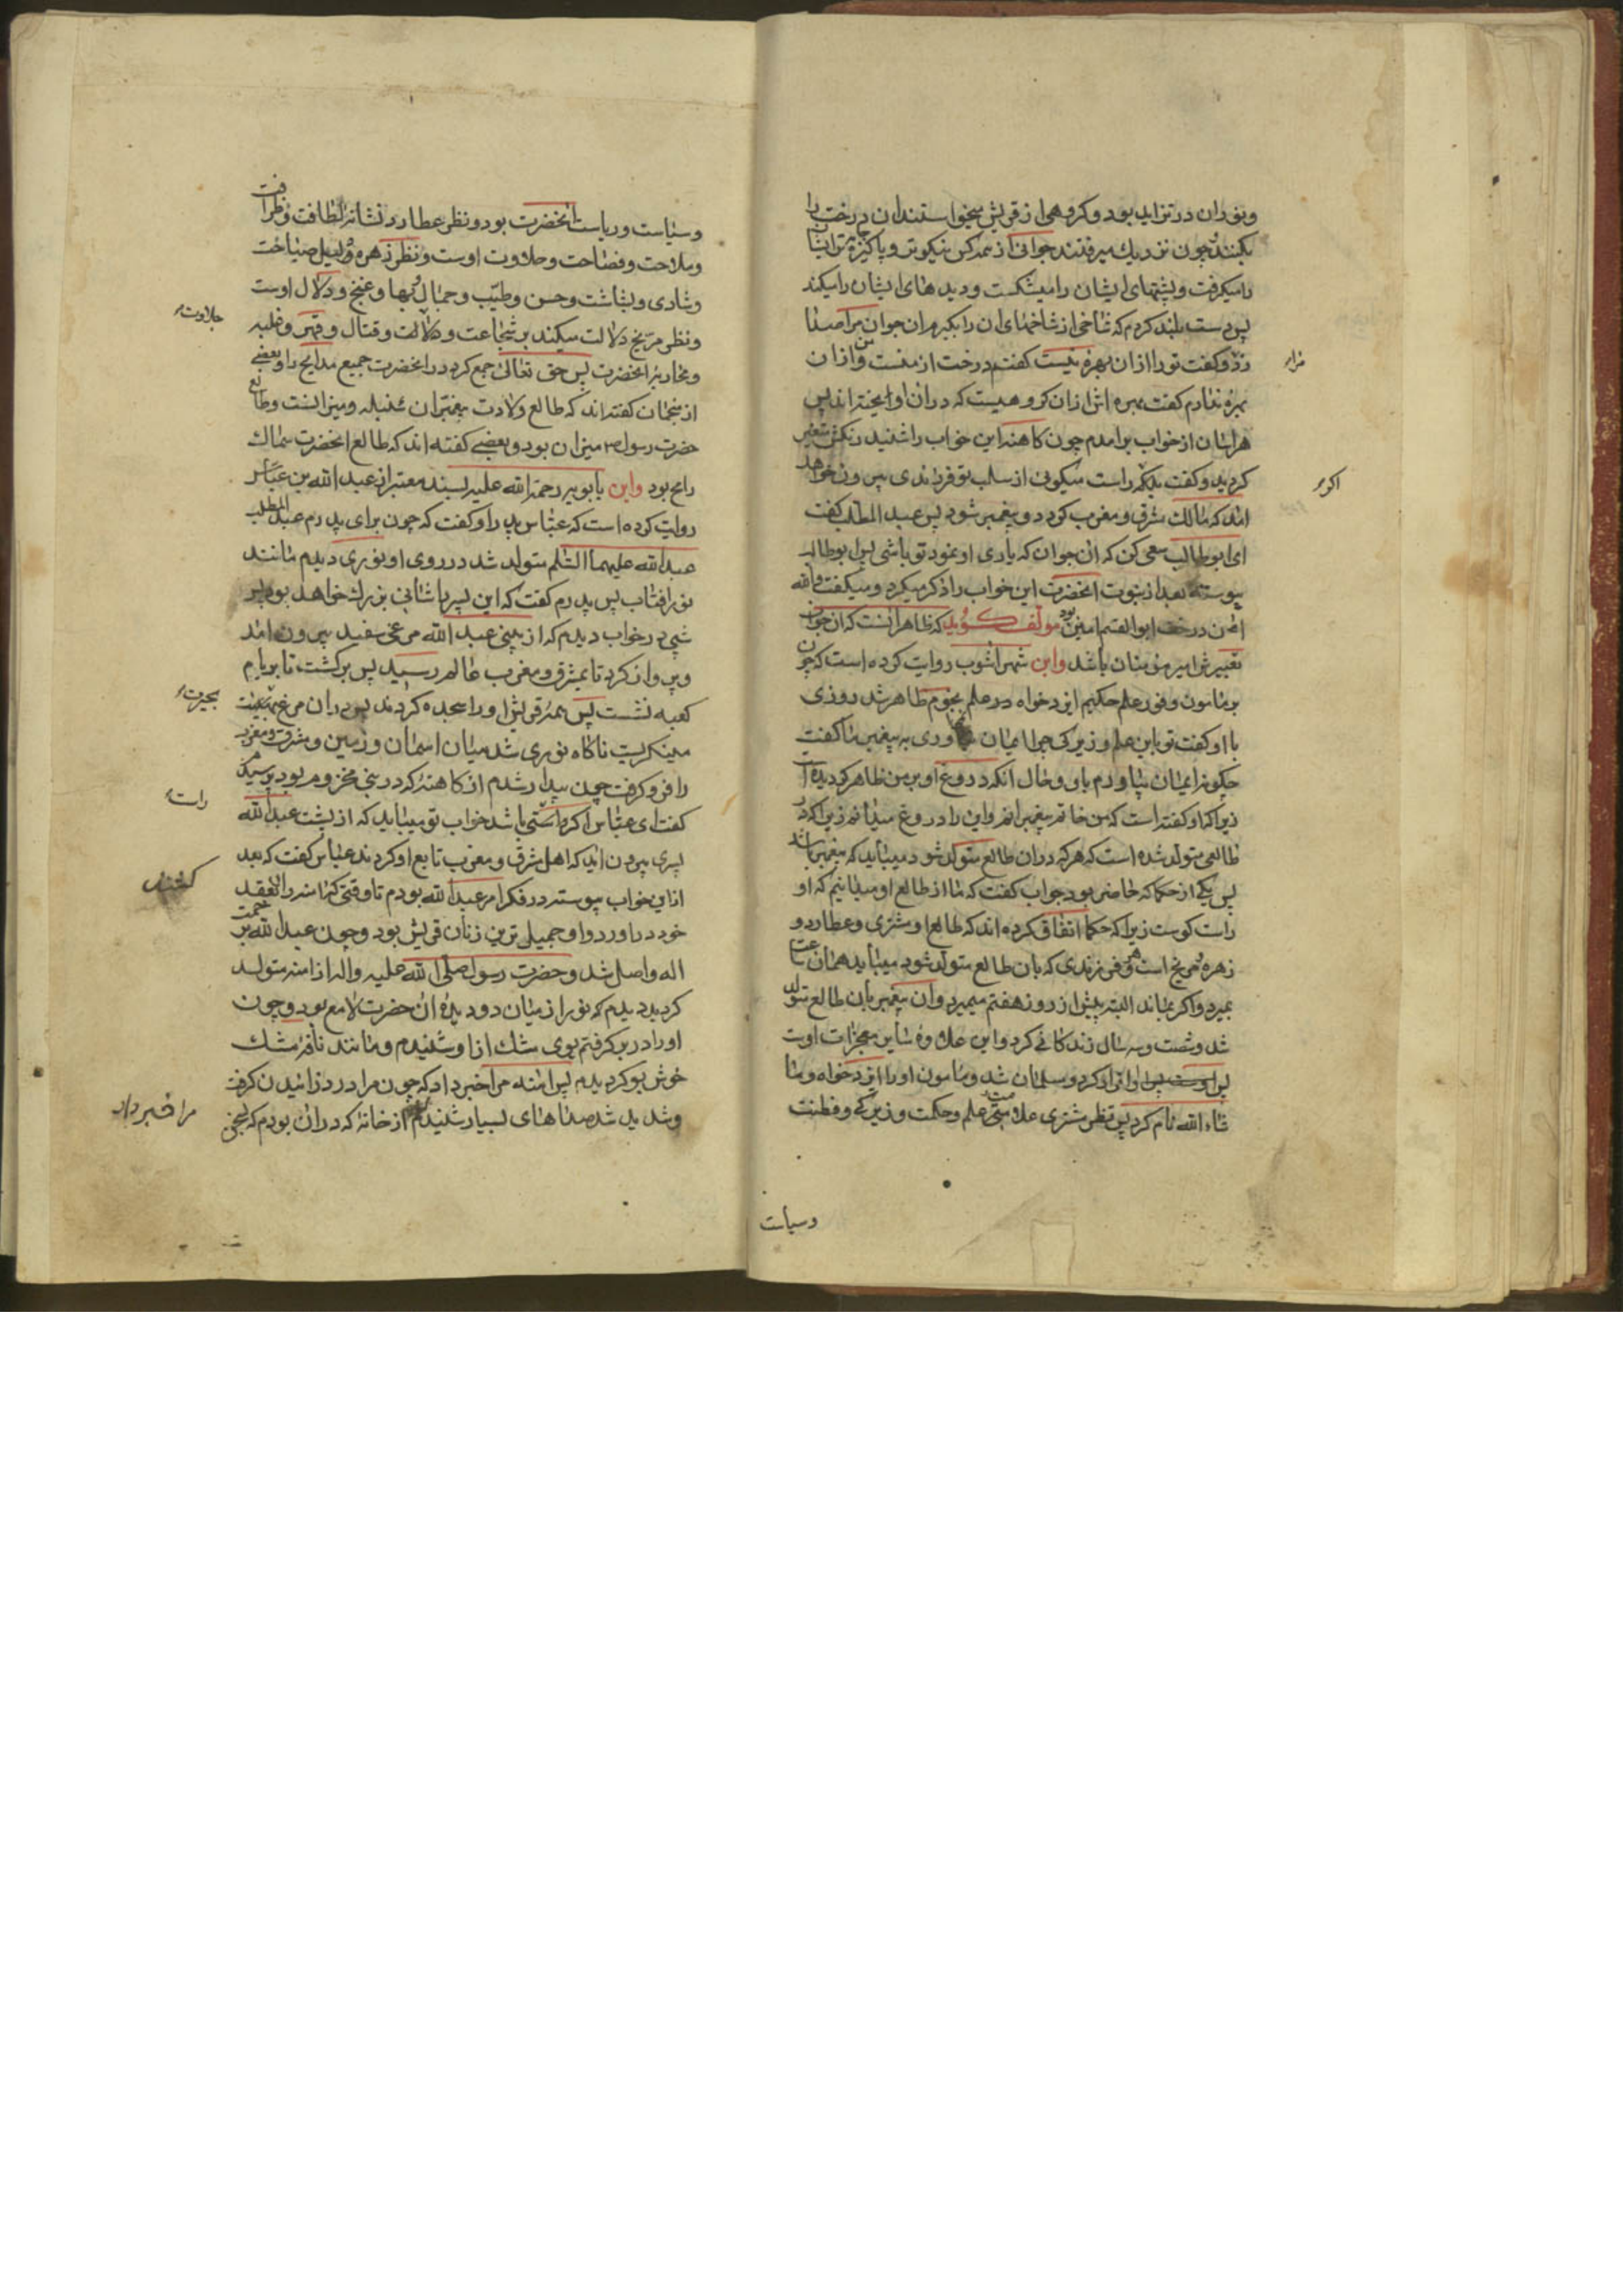 ونور ان در تزاید بود و کروهی از قریش میخواستند ان درخت را
بکنند چون نزدیك میرفتند جوانی از همه کس نیکوتر و پاکیزه تر ایشان
را میکرفت و پشتهای ایشان را میشکست و دیدهای ایشان را میکند
پس دست بلند کردم که شاخی از شاخهای ان را بکیرم ان جوان مرا صدا
زد و کفت تو را از ان بهره نیست کفتم درخت از منست و من از ان
بهره ندارم کفت بهره اش از ان کروهیست که در ان اویخته اند پس
هراسان از خواب برامدم چون کاهنه این خواب را شنید رنکش متغیر
کردید و کفت راست میکوئی از صلب تو فرزندی بیرون خواهد
امد که مالك مشرق و مغرب کردد و پیغمبر شود پس عبد المطلب کفت
ای ابو طالب سعی کن که ان جوان که یاری او نمود تو باشی پس ابو طالب
پیوسته بعد از نبوت انحضرت این خواب را ذکر میکرد و میکفت والله
ان درخت ابو القسم امین بود مؤلف کوید که ظاهر انست که ان جوان
تعبیرش امیر مؤمنان باشد وابن شهر اشوب روایت کرده است که چون
بر مامون وفور علم حکیم ایزدخواه در علم نجوم ظاهر شد روزی
با او کفت تو باین علم و زیرکی چرا ایمان نمی اوری به پیغمبر ما کفت
چکونه ایمان بیاورم باو و حال انکه دروغ او بر من ظاهر کردیده است
زیرا که او کفته است که من خاتم پیغمبرانم و این را دروغ میدانم زیرا که در
طالعی متولد شده است که هر که در ان طالع متولد شود میباید که پیغمبر باشد
پس یکی از حکما که حاضر بود جواب کفت که ما از طالع او میدانیم که او
راست کوست زیرا که حکما اتفاق کرده اند که طالع او مشتری و عطارد و
زهره و مریخ است و هر فرزندی که بان طالع متولد شود میباید همان ساعت
بمیرد و اکر بماند البته پیش از روز هفتم میمیرد و ان پیغمبر بان طالع متولد
شد و شصت و سه سال زندکانی کرد و این علاوه سایر معجزات اوست
پس او اقرار کرد و مسلمان شد و مامون او را ایزدخواه و ما
شاء الله نام کرد پس نظر مشتری علامت علم و حکمت و زیرکی و فطنت
وسیاست
مرا
اکر
وسیاست و ریاست انحضرت بود و نظر عطارد نشانه لطافت و ظرافت
و ملاحت و فصاحت و حلاوت اوست و نظر زهره دلیل صباحت
و شادی و بشاشت و حسن و طیب و جمال و بها و غنج و دلال اوست
و نظر مریخ دلالت میکند بر شجاعت و جلالت و قتال و قهر و غلبه
و محاربه انحضرت پس حق تعالی جمع کرد در انحضرت جمیع مدایح را و بعضی
از منجمان کفته اند که طالع ولادت پیغمبران سنبله و میزانست و طالع
حضرت رسول میزان بود و بعضی کفته اند که طالع انحضرت سماك
رامح بود وابن بابویه رحمة الله علیه بسند معتبر از عبد الله بن عباس
روایت کرده است که عباس پدر او کفت که چون برای پدرم عبد المطلب
عبد الله علیهما السّلم متولد شد در روی او نوری دیدم مانند
نور افتاب پس پدرم کفت که این پسر را شانی بزرك خواهد بود پس
شبی در خواب دیدم که از بینی عبد الله مرغی سفید بیرون امد
و پرواز کرد تا بمشرق و مغرب عالم رسید پس برکشت تا بر بام
کعبه نشست پس همه قریش او را سجده کردند پس در ان مرغ بحیرت
مینکریست ناکاه نوری شد میان اسمان و زمین و مشرق و مغرب
را فرو کرفت چون بیدار شدم از کاهنه که در بنی مخزوم بود پرسیدم
کفت ای عباس اکر راستی باشد خواب تو میباید که از پشت عبد الله
پسری بیرون اید که اهل مشرق و مغرب تابع او کردند عباس کفت که بعد
از این خواب پیوسته در فکر امر عبد الله بودم تا وقتی که امنه را بعقد
خود دراورد و او جمیل ترین زنان قریش بود و چون عبد الله برحمت
اله واصل شد و حضرت رسول صلی الله علیه واله از امنه متولد
کردید دیدم که نور از میان دو دیدۀ ان حضرت لامع بود و چون
او را در بر کرفتم بوی مشك از او شنیدم و مانند نافه مشك
خوش بو کردیدم پس امنه مرا خبر داد که چون مرا درد زائیدن کرفت
و شدید شد صداهای بسیار شنیدم از خانۀ که در ان بودم که بسخن
جلادت
بحیرت
راست
مرا خبر داد